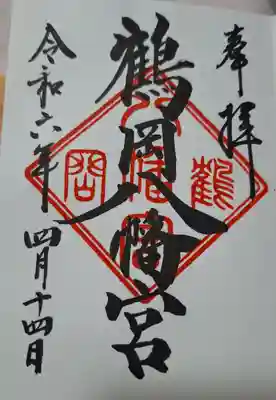 奉拝
鶴岡八幡宮
令和六年 四月十四日
鶴
八幡宮
岡